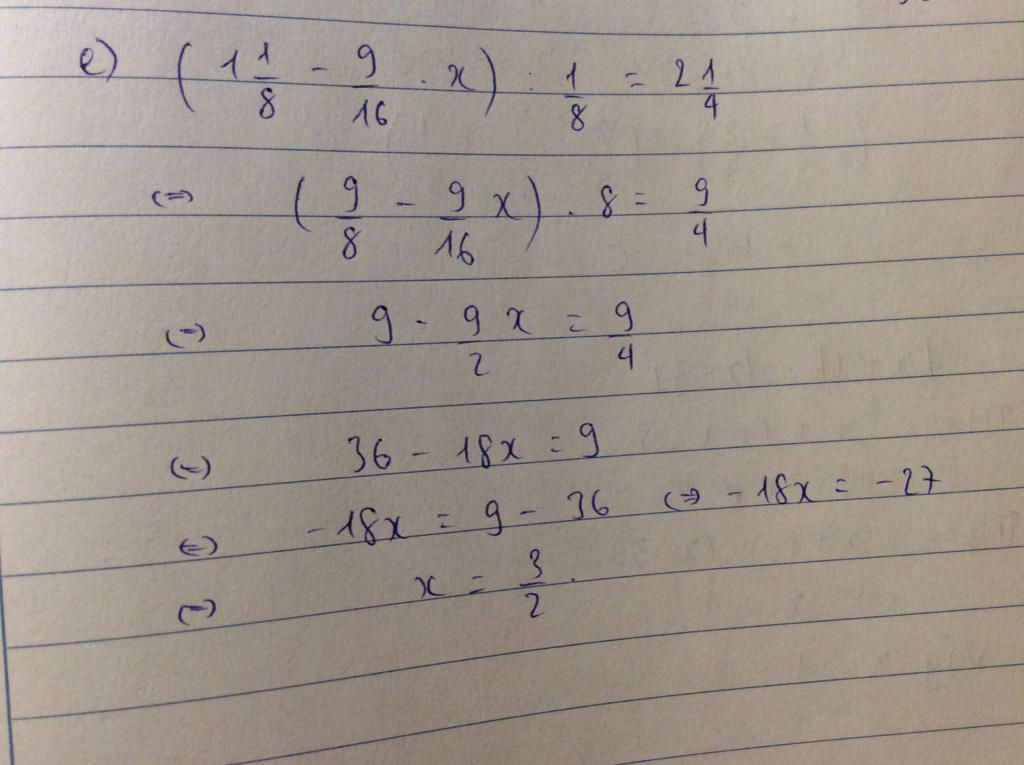 e) (1 1/8 - 9/16 . x) : 1/8 = 2 1/4
(=) (9/8 - 9/16 x) . 8 = 9/4
(=) 9 - 9/2 x = 9/4
(=) 36 - 18x = 9
(=) -18x = 9 - 36 (=) -18x = -27
(=) x = 3/2.